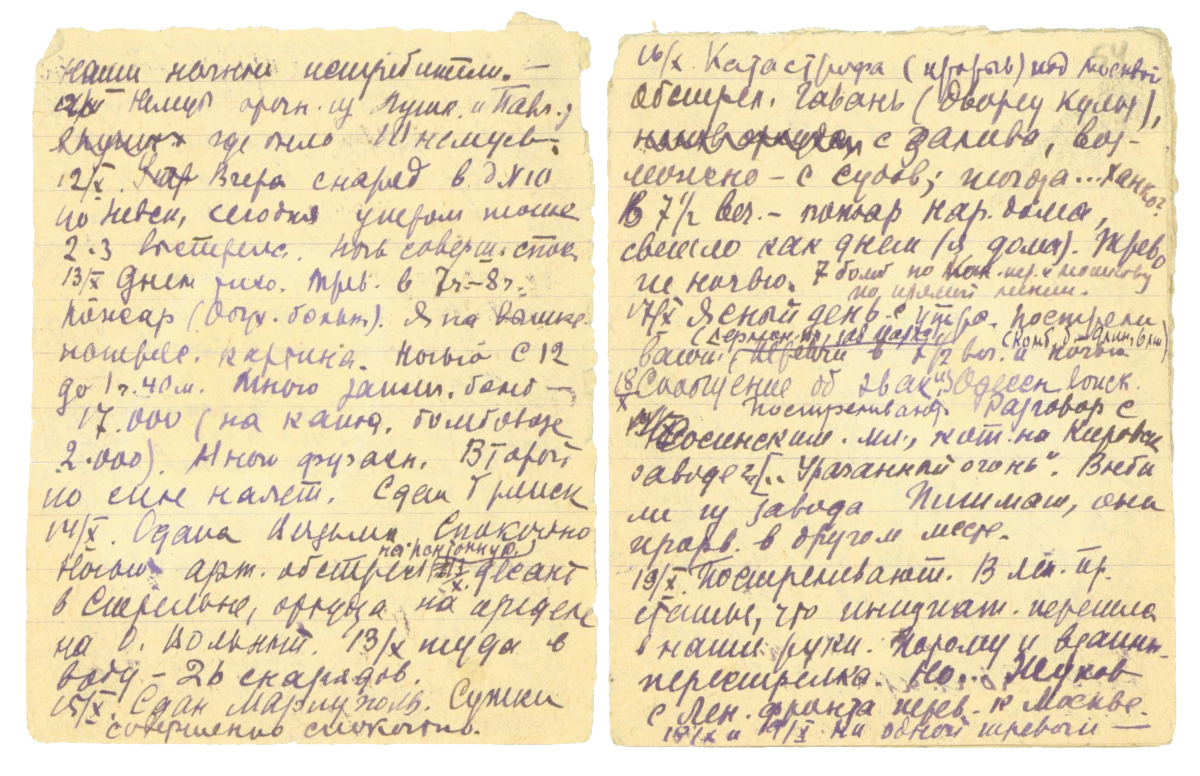 наши ночные истребители. —
Немцы орочн. из Пушк. и Павл.,
где было
12/X. Вчера снаряд в д №10
по Невск, сегодня утром тоже
2-3 выстрела. Ночь соверш. спок.
13/X Днем тихо. Трев. в 7ч–8ч.
Пожар (Обух. больн.). Я на вышке.
картина. Ночью с 12
до 1ч. 40м. Много зажиг. бомб —
17.000 (на канд. бомбовоза
2.000). Много фугасн. Второй
по силе налет. Сдан Брянск
14/X. Сдана Вязьма. Спокойно
на понтонную
Ночью арт. обстрел десант
в Стрельне, откуда на
на о. Вольный. 13/X туда в
воду – 26 снарядов.
15/X. Сдан Мариуполь. Сутки
совершенно спокойно.
16/X. Катастрофа (прорыв) под Москвой
обстрел. Гавань (Дворец Культ),
с залива, воз-
можно – с судов; тогда... Ханко?
В 7 1/2 веч. – пожар нар. дома,
светло как днем (я дома). Трево
ги ночью. 7 бомб по пер. и
по прямой линии.
17/X Ясный день, с утра. постре
вают. в 7 1/2 веч. и ночью
18/X Сообщение об эвак. из Одессы войск.
Постреливают. Разговор с
Сосинским. мл., кот. на Кировск
заводе „Ураганный огонь". Выби
ли из завода Пишмаш, они
прорв. в другом месте.
19/X. Постреливают. В Лен. пр.
статья, что инициат. перешла
в наши руки. Потому и взаимн.
перестрелка. Но... Жуков
с Лен. фронта перев. к Москве.
18/X и 19/X ни одной тревоги —